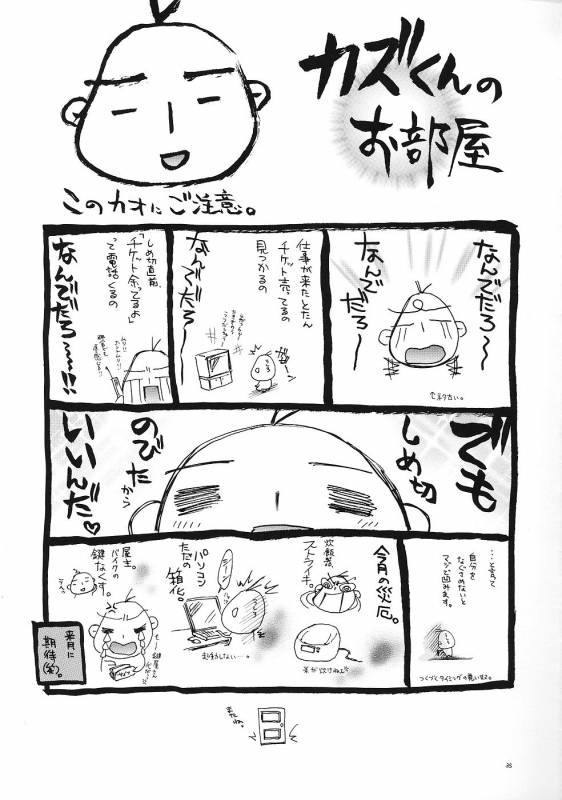 カズくんの
お部屋
このカオにご注意。
なんでだろ〜
なんでだろ〜
仕事が来たとたん
チケット売ってるの
見つかるの
なんでだろ〜
しめ切直前
「チケット余ってるよ」
って電話くるの
なんでだろ〜〜!!
でも
しめ切
のびたから
いいんだ♡
…と言って
自分を
なぐさめないと
マジで凹みます。
つくづくタイミングの悪い奴。
今月の災厄。
炊飯器、
ストライキ。
米が炊けねェ
パソコン
ただの
箱化。
起動しない…。
尾も。
バイクの
鍵なくす。
来月に
期待(笑)。
またね。
35